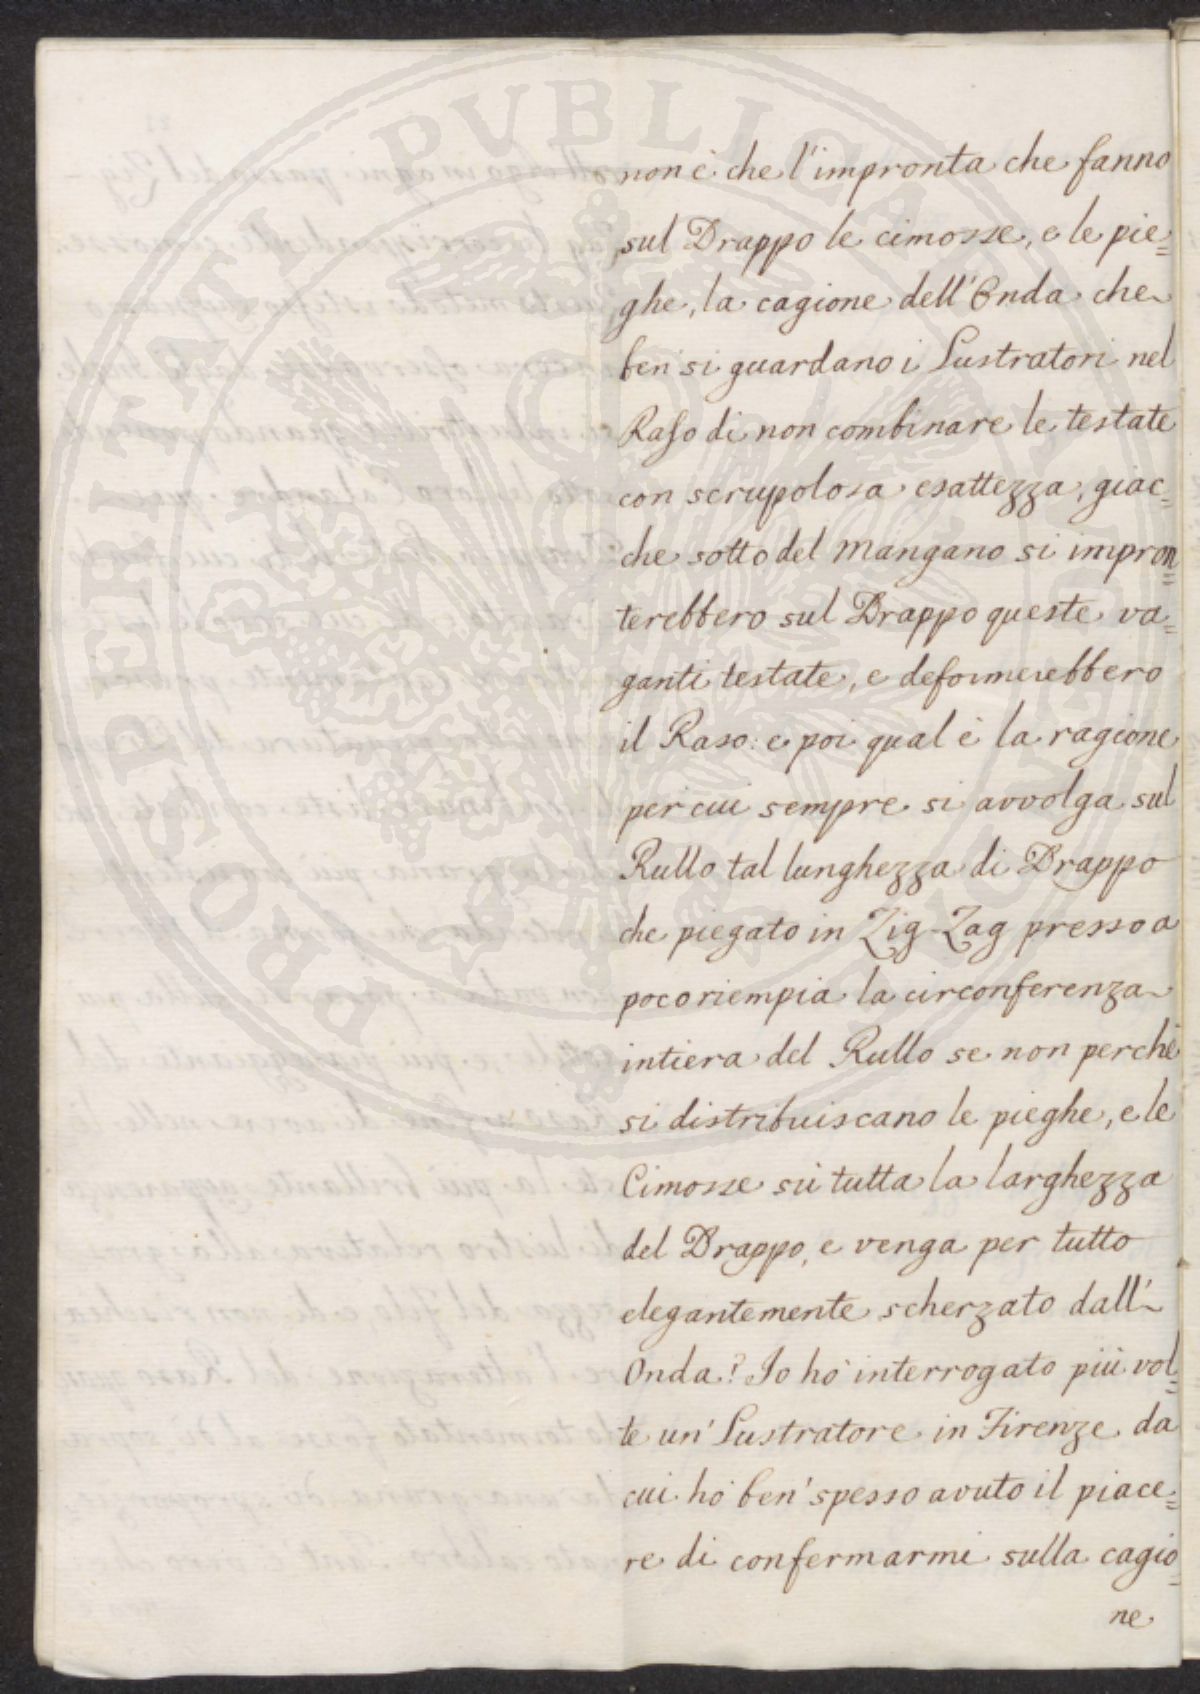 non è che l'impronta che fanno
sul Drappo le cimosse, e le pie=
ghe, la cagione dell'Onda che
ben si guardano i Lustratori nel
Raso di non combinare le testate
con scrupolosa esattezza, giac=
che sotto del Mangano si impron=
terebbero sul Drappo queste va=
ganti testate, e deformerebbero
il Raso: e poi qual è la ragione
per cui sempre si avvolga sul
Rullo tal lunghezza di Drappo
che piegato in Zig-Zag presso a
poco riempia la circonferenza
intiera del Rullo se non perchè
si distribuiscano le pieghe, e le
Cimosse sù tutta la larghezza
del Drappo, e venga per tutto
elegantemente scherzato dall'
Onda? Io hò interrogato più vol=
te un' Lustratore in Firenze da
cui hò ben' spesso avuto il piace=
re di confermarmi sulla cagio=
ne
PROSPERITATI PVBLICAE AVGENDAE